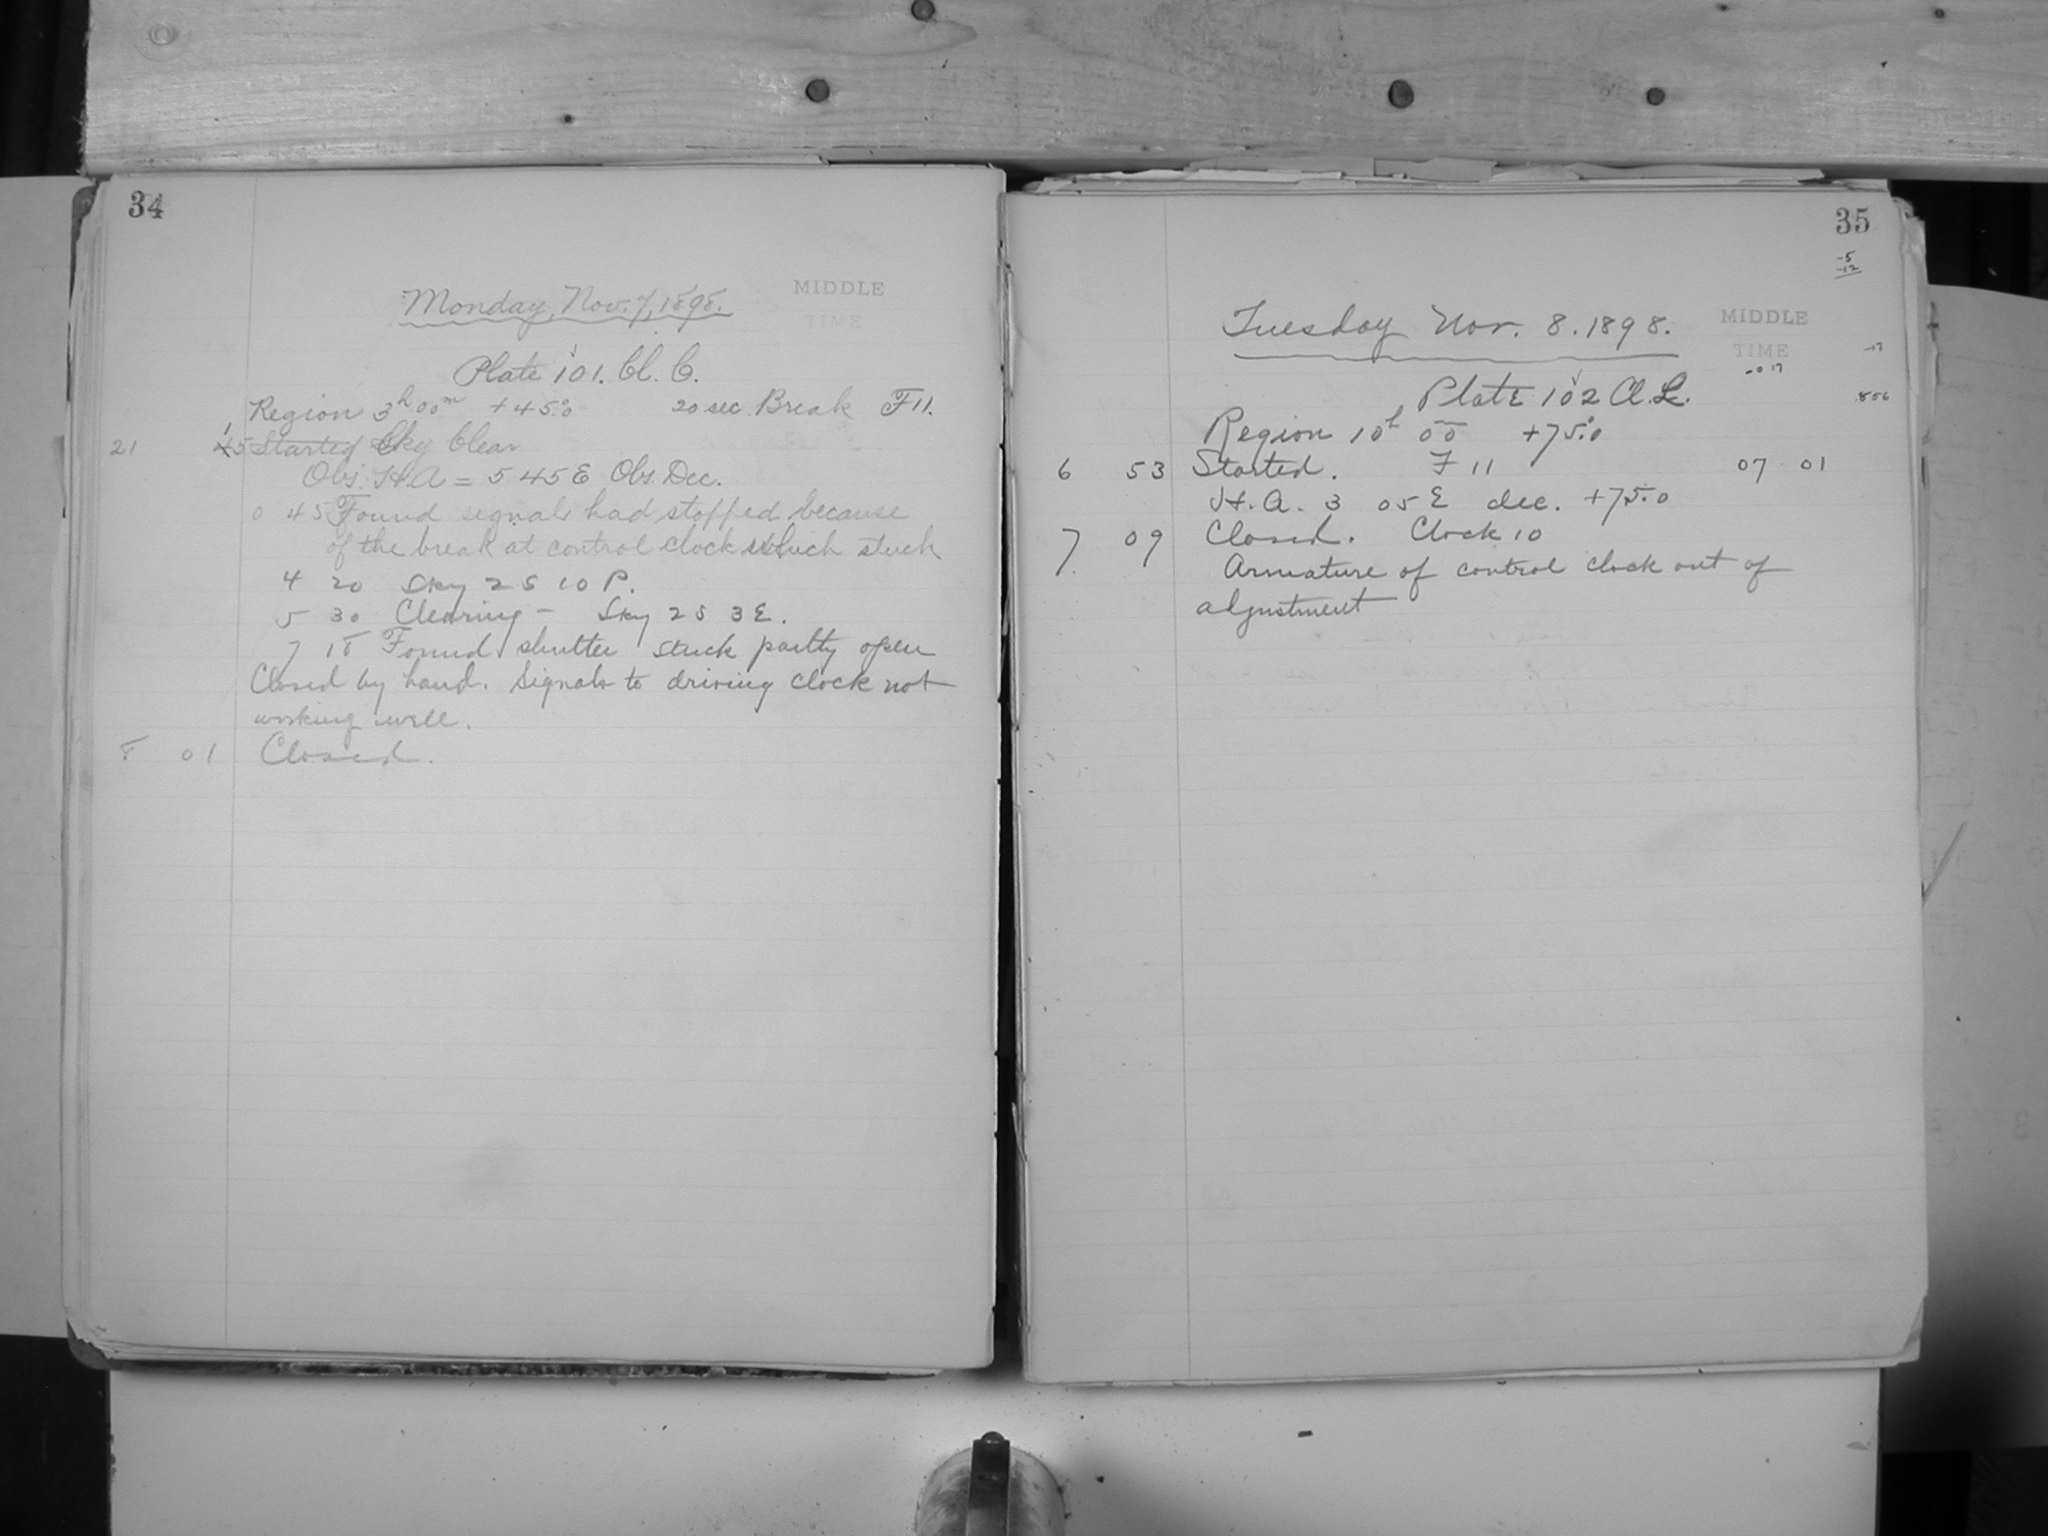 34
MIDDLE
TIME
Monday, Nov. 7, 1898.
Plate 101. Cl. C.
Region 3h 00m +45.°0 20 sec. Break F 11.
21 15 Started Sky Clear
Obs. H.A = 5 45 E Obs. Dec.
0 45 Found signals had stopped because
of the break at control clock which stuck
4 20 Sky 2 S 10 P.
5 30 Clearing - Sky 2 S 3 E.
7 18 Found shutter stuck partly open
Closed by hand. Signals to driving clock not
working well.
8 01 Closed.
35
-5
-12
MIDDLE
TIME
Tuesday Nov. 8. 1898.
-17
-0 17
Plate 102 Cl. C.
.856
Region 10h 00m +75.°0
6 53 Started. F 11 07 01
H.A. 3 05 E dec. +75.0
7 09 Closed. Clock 10
7. Armature of control clock out of
adjustment